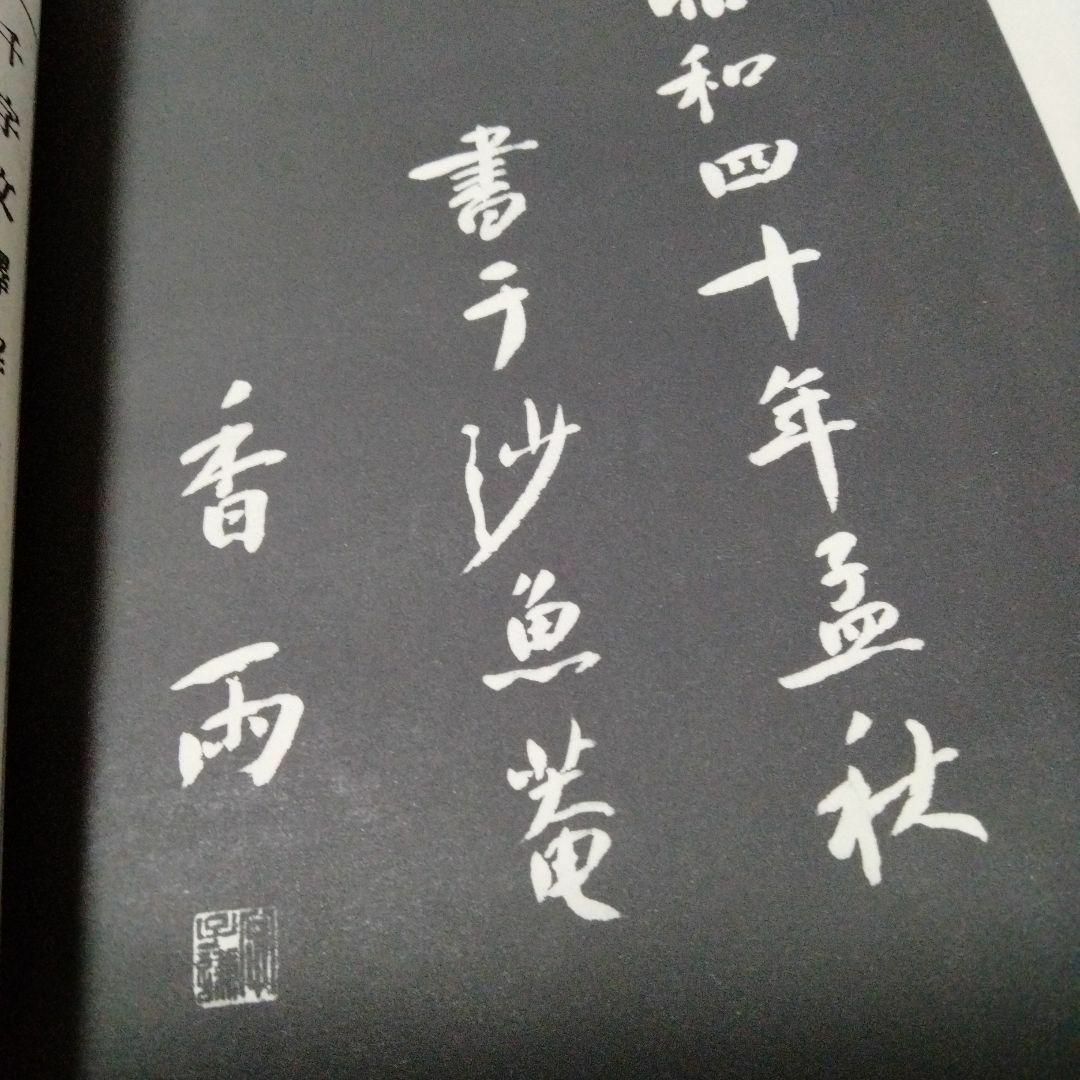 昭和四十年孟秋
書于沙魚菴
香雨
千字文